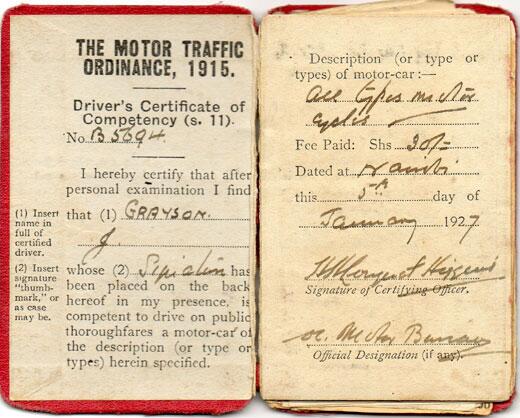 THE MOTOR TRAFFIC
ORDINANCE, 1915.
Driver's Certificate of
Competency (s. 11).
No. B5694.
I hereby certify that after
personal examination I find
(1) Insert name in full of certified driver.
that (1) GRAYSON.
J.
(2) Insert signature "thumb-mark," or as case may be.
whose (2) Signature has
been placed on the back
hereof in my presence, is
competent to drive on public
thoroughfares a motor-car of
the description (or type or
types) herein specified.
Description (or type or
types) of motor-car:—
All types motor
cycles
Fee Paid: Shs 20/-
Dated at Nairobi
this 5th day of
January 1927
Higgens
Signature of Certifying Officer.
Motor Bureau
Official Designation (if any).